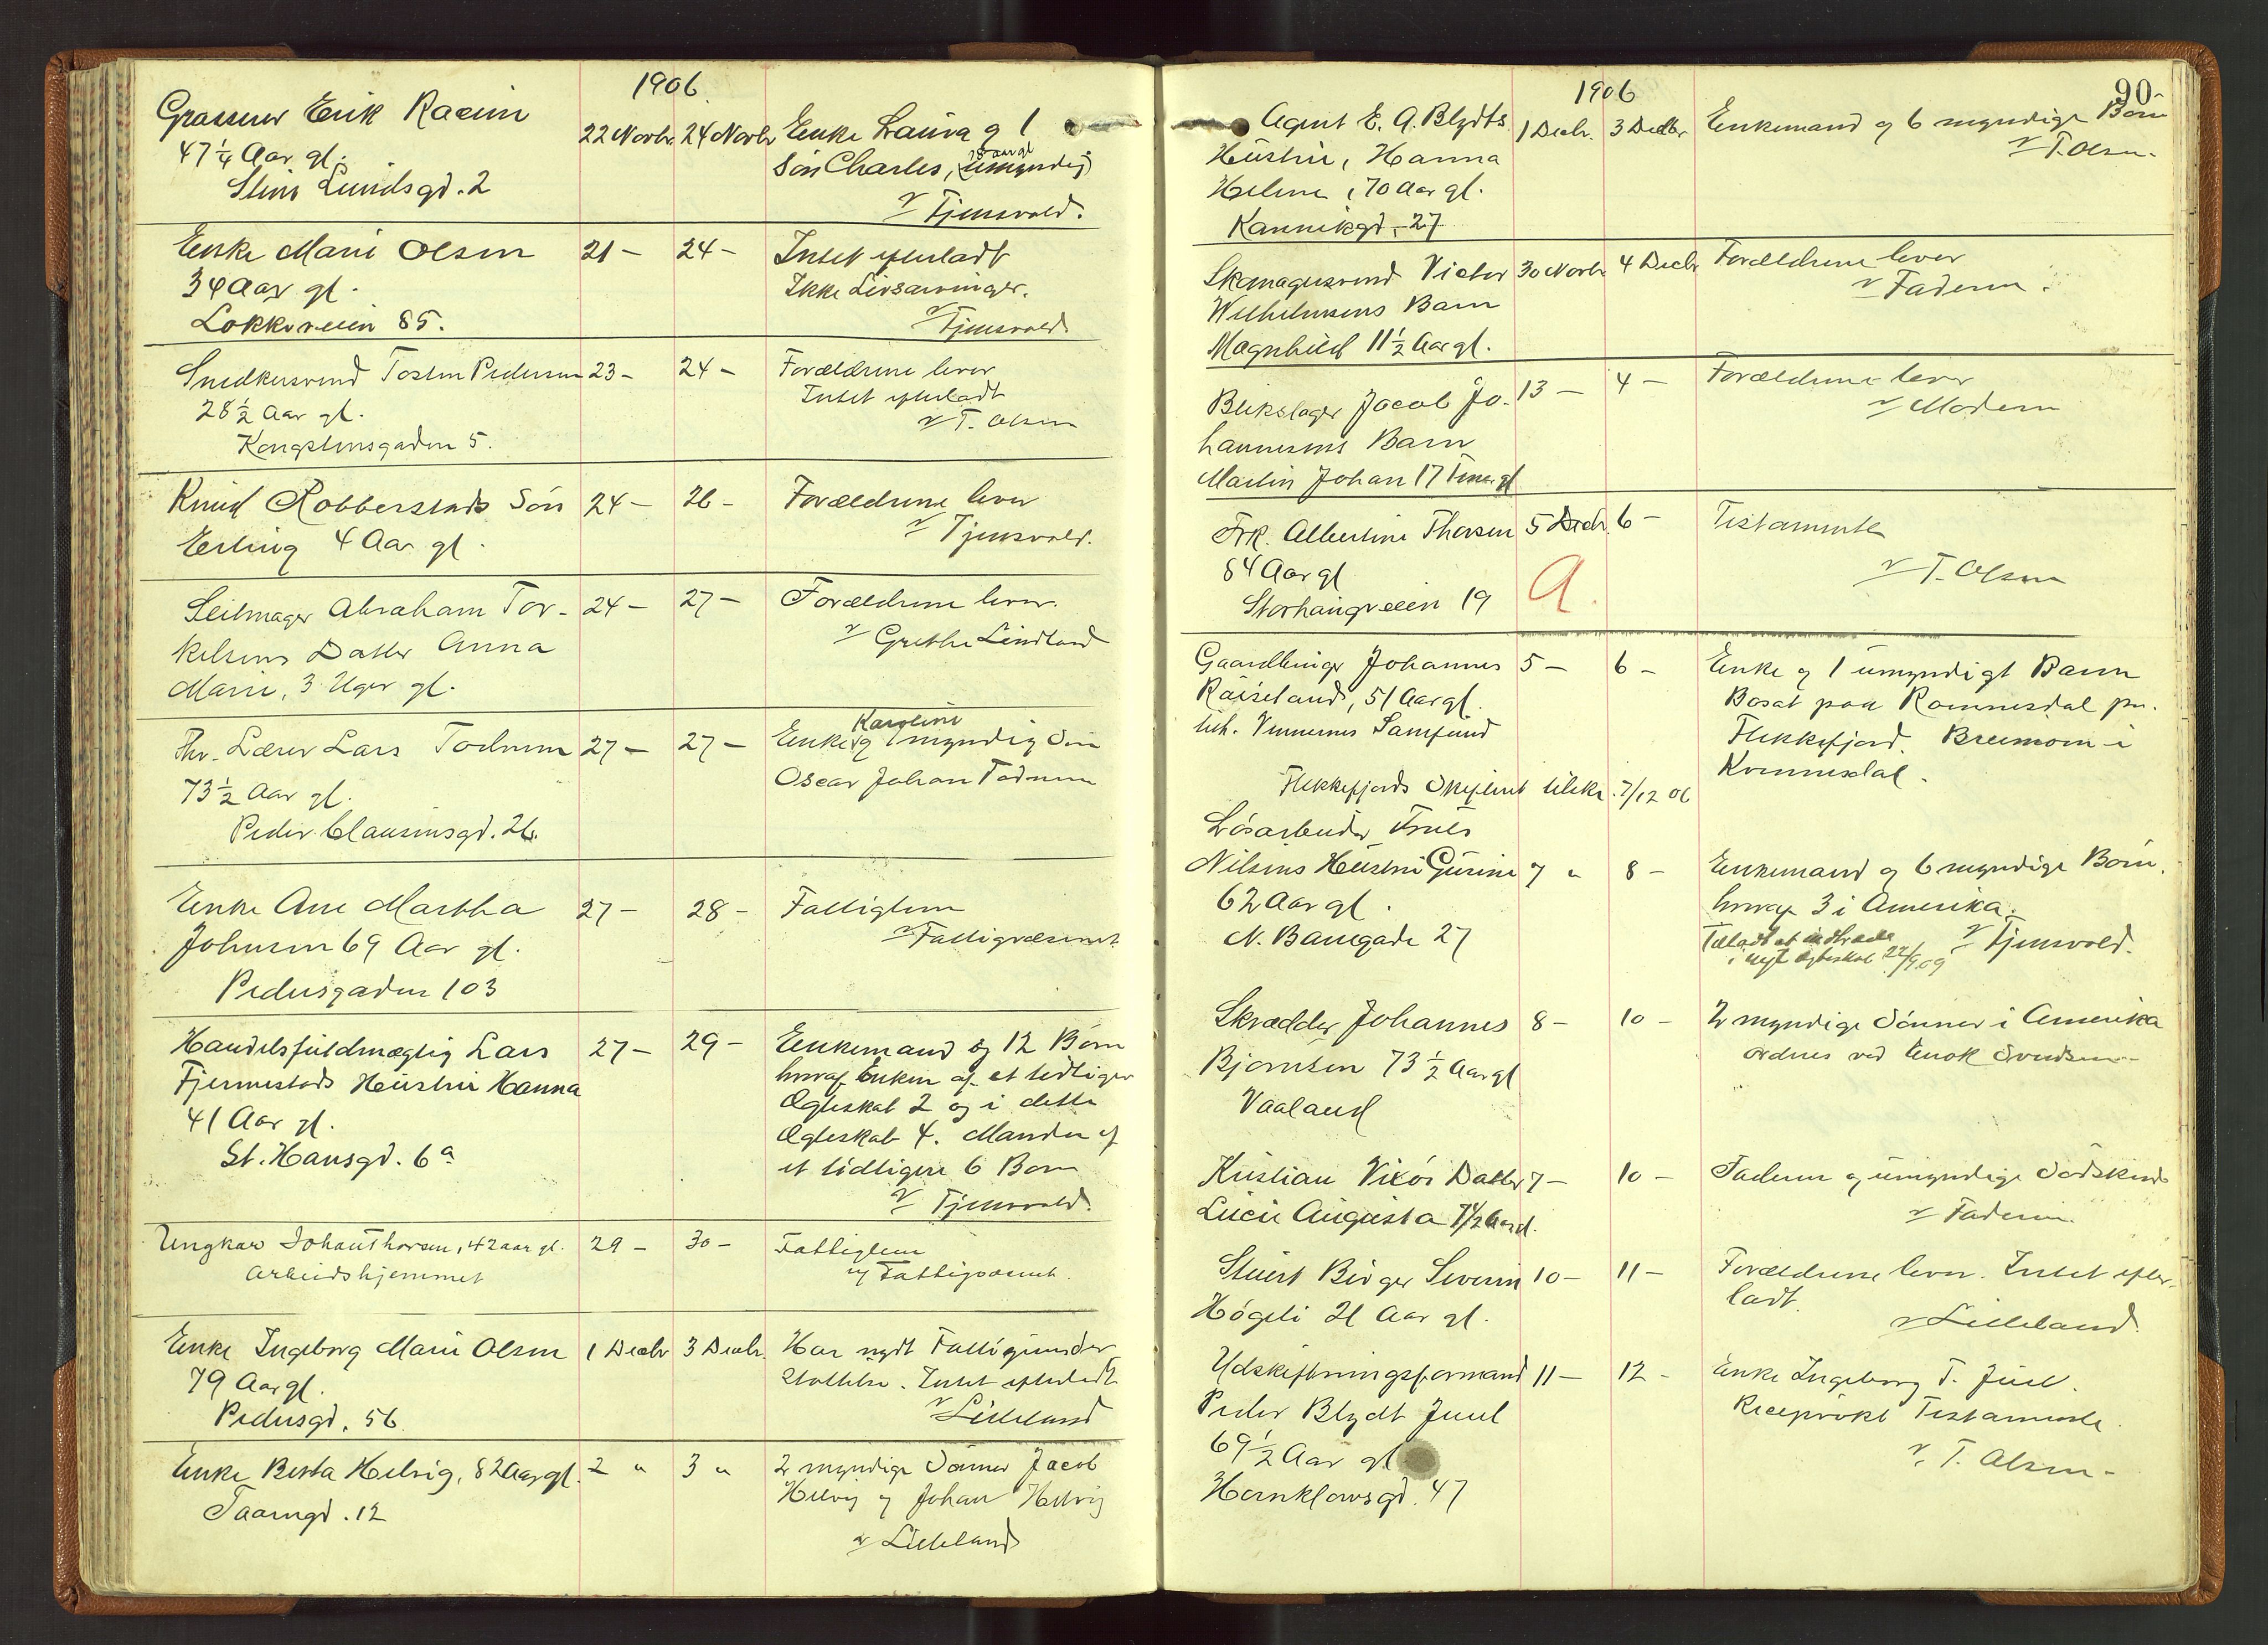 1906
Grosserer Erik Raeim
47 1/4 Aar gl.
Stine Lundsgd. 2
22 Novbr. 24 Novbr
Enke Laura og 1
18 aar gl
Søn Charles, (umyndig)
v Tjensvold.
Enke Marie Olsen
34 Aar gl.
Lokkeveien 85.
21 — 24 —
Intet efterladt
Ikke Livsarvinger.
v Tjensvold.
Snedkersvend Tosten Pedersen
28 1/2 Aar gl.
Kongstensgaden 5.
23 — 24 —
Forældrene lever
Intet efterladt
v T. Olsen
Knud Robberstads Søn
Erling 4 Aar gl.
24 — 26 —
Forældrene lever
v Tjensvold.
Seilmager Abraham Tor-
kelsens Datter Anna
Marie, 3 Uger gl.
24 — 27 —
Forældrene lever.
v Grethe Lindland
Fhv. Lærer Lars Todnem
73 1/2 Aar gl.
Peder Clausensgd. 26.
27 — 27 —
Karoline
Enke og 1 myndig Søn
Oscar Johan Todnem
Enke Ane Martha
Johnsen 69 Aar gl.
Pedersgaden 103
27 — 28 —
Fattiglem
v Fattigvæsenet
Handelsfuldmægtig Lars
Fjermestads Hustru Hanna
41 Aar gl.
St. Hansgd. 6a
27 — 29 —
Enkemand og 12 Børn
hvoraf Enken af et tidligere
Ægteskab 2 og i dette
Ægteskab 4. Manden af
et tidligere 6 Børn
v Tjensvold.
Ungkar Johan Thorsen, 42 aar gl.
Arbeidshjemmet
29 — 30 —
Fattiglem
v Fattigvæsenet.
Enke Ingeborg Marie Olsen
79 Aar gl.
Pedersgd. 56
1 Decbr 3 Decbr.
Har nydt Fattigunder
støttelse. Intet efterladt
v Lilleland
Enke Berta Helvig, 82 Aar gl.
Taarngd. 12
2 " 3 "
2 myndige Sønner Jacob
Helvig og Johan Helvig
v Lilleland
1906
90
Agent E. A. Blydts
Hustru, Hanna
Helene, 70 Aar gl.
Kannikgd. 27
1 Decbr. 3 Decbr
Enkemand og 6 myndige Børn
v T. Olsen.
Skomagersvend Victor
Wilhelmsens Barn
Magnhild 11 1/2 Aar gl.
30 Novbr 4 Decbr
Forældrene lever
v Faderen.
Blikslager Jacob Jo-
hannesens Barn
Martin Johan 17 Timer gl
13 — 4 —
Forældrene lever
v Moderen
Frk. Albertine Thorsen
84 Aar gl
Storhaugveien 19
5 Decbr. 6 —
A.
Testamente
v T. Olsen
Gaardbruger Johannes
Røiseland, 51 Aar gl.
tilh. Vennernes Samfund
5 — 6 —
Enke og 1 umyndigt Barn
Bosat paa Kommesdal pr.
Flekkefjord. Breimoen i
Kommesdal.
Flekkefjords Skifteret tilskr. 7/12 06
Løsarbeider Truls
Nilsens Hustru Gurine
62 Aar gl.
N. Banegade 27
7 " 8 —
Enkemand og 6 myndige Børn.
hvoraf 3 i Amerika.
v Tjensvold.
Tilladt at indtræde
i nyt Ægteskab 22/9 09
Skrædder Johannes
Bjørnsen 73 1/2 Aar gl
Vaaland
8 — 10 —
2 myndige Sønner i Amerika
ordnes ved Enok Svendsen
Kristian Vikøs Datter
Lucie Augusta 7 1/2 Aar gl.
7 — 10 —
Faderen og umyndige Sødskende
v Faderen.
Stuert Birger Severin
Høgeli 21 Aar gl.
10 — 11 —
Forældrene lever. Intet efter-
ladt.
v Lilleland.
Udskiftningsformand
Peder Blydt Juul
69 1/2 Aar gl
Hornklovsgd. 47
11 — 12 —
Enke Ingeborg T. Juul.
Reciprokt Testamente.
v. T. Olsen.